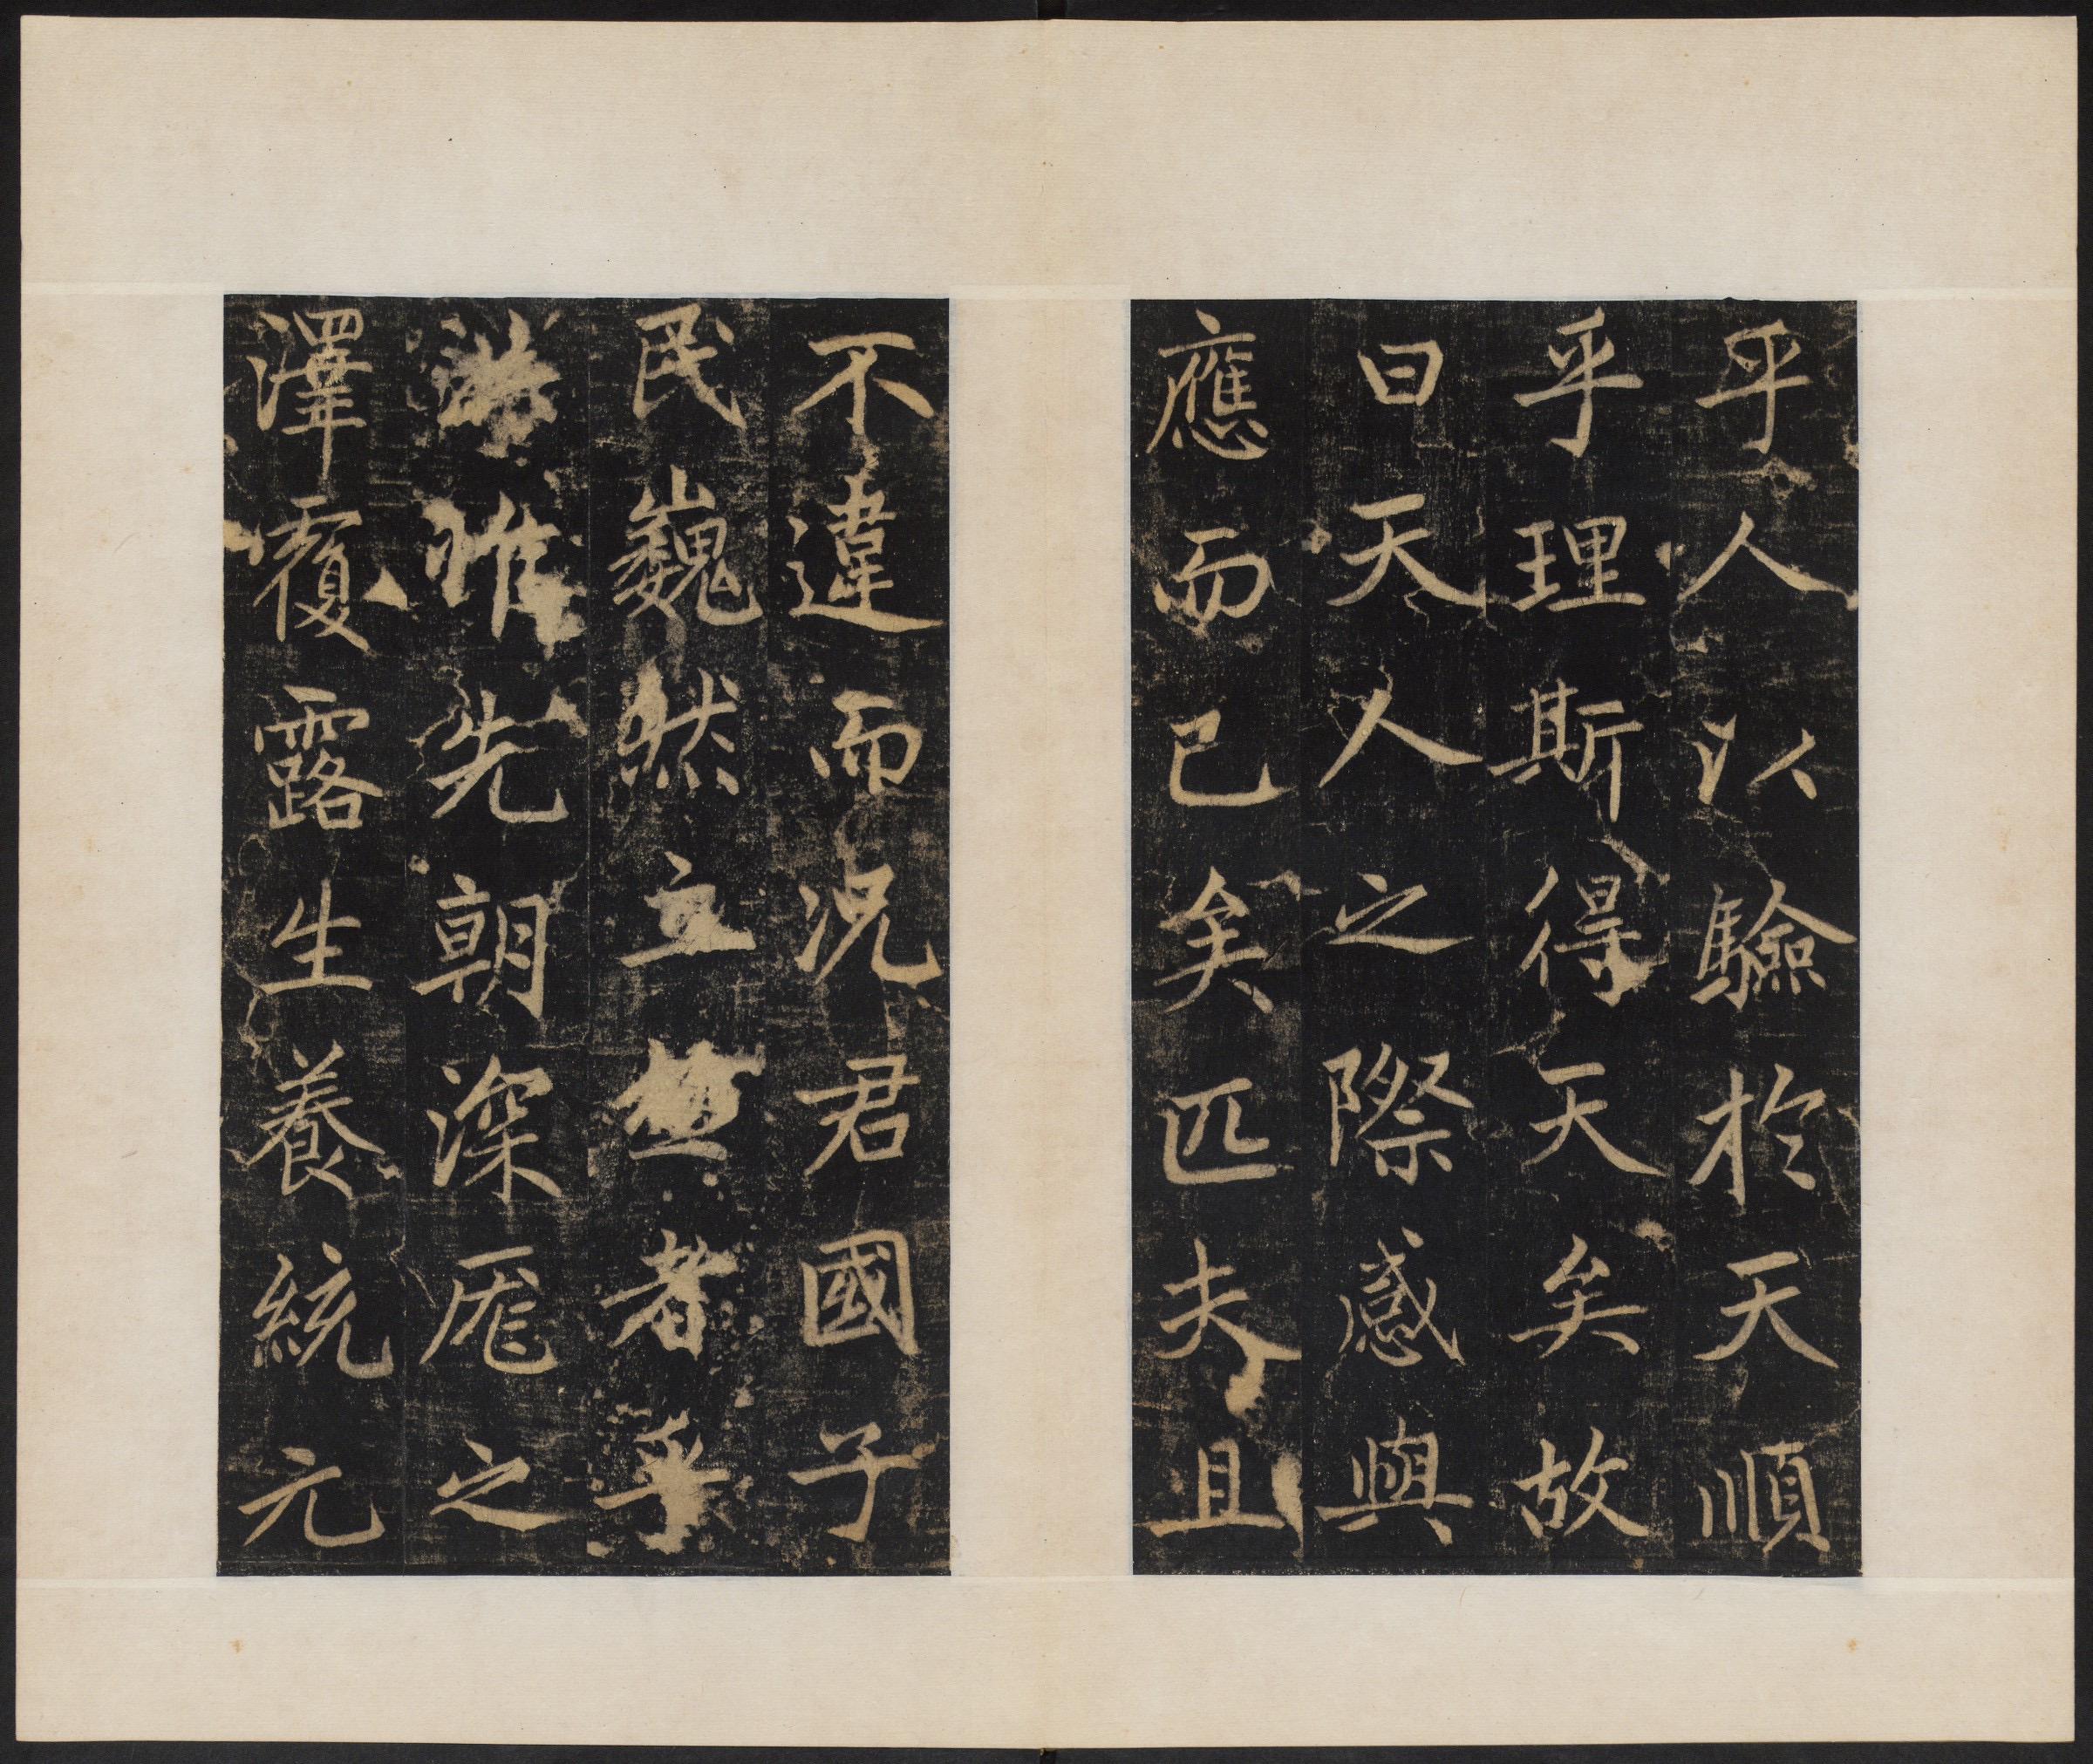 乎人以驗於天順
乎理斯得天矣故
曰天人之際感與
應而已矣匹夫且
不違而況君國子
民巍然立極者乎
洪惟先朝深厖之
澤覆露生養統元